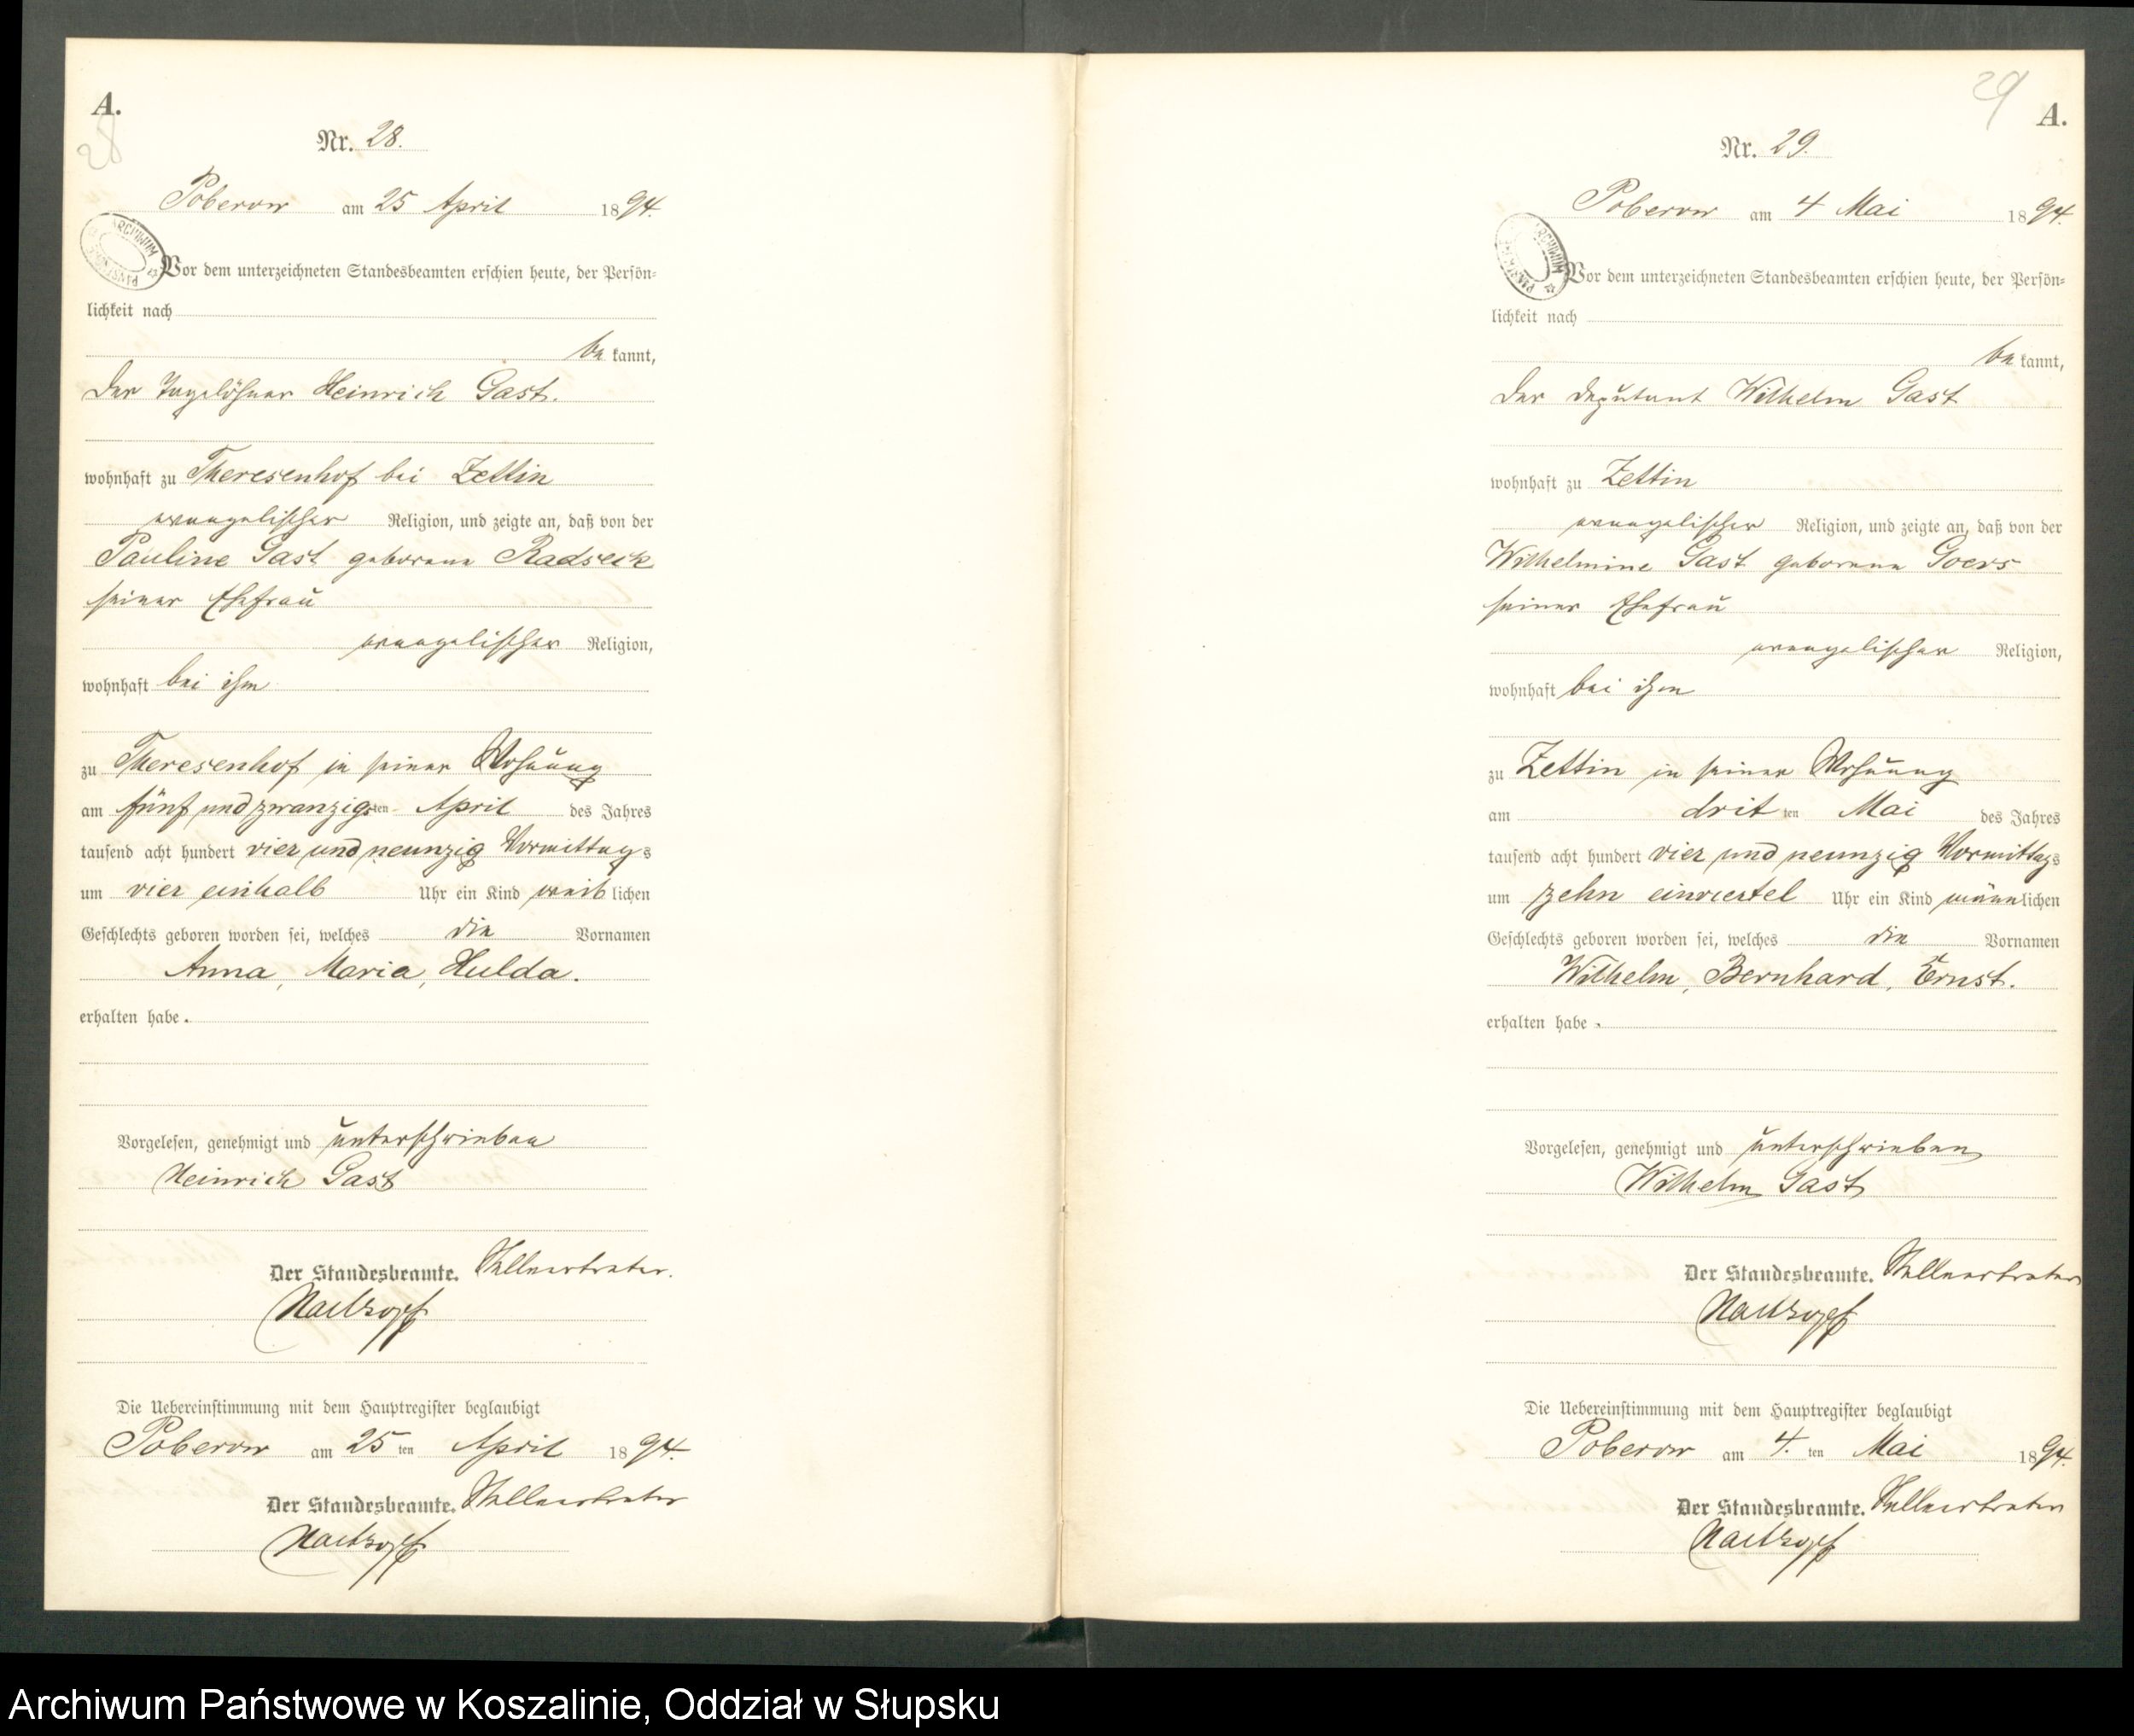 A.
28
Nr. 28.
Poberow am 25 April 1894.
ARCHIWUM
Vor dem unterzeichneten Standesbeamten erschien heute, der Persön-
lichkeit nach
be kannt,
der Tagelöhner Heinrich Gast.
wohnhaft zu Theresenhof bei Zettin
evangelischer Religion, und zeigte an, daß von der
Pauline Gast geborene Radseck
seiner Ehefrau
evangelischer Religion,
wohnhaft bei ihm
zu Theresenhof in seiner Wohnung
am fünf und zwanzigsten April des Jahres
tausend acht hundert vier und neunzig Vormittags
um vier einhalb Uhr ein Kind weiblichen
Geschlechts geboren worden sei, welches die Vornamen
Anna, Maria, Hulda.
erhalten habe.
Vorgelesen, genehmigt und unterschrieben
Heinrich Gast
Der Standesbeamte. Stellvertreter.
Die Uebereinstimmung mit dem Hauptregister beglaubigt
Poberow am 25 ten April 1894.
Der Standesbeamte. Stellvertreter
29
A.
Nr. 29.
Poberow am 4 Mai 1894.
ARCHIWUM
Vor dem unterzeichneten Standesbeamten erschien heute, der Persön-
lichkeit nach
be kannt,
der Deputant Wilhelm Gast
wohnhaft zu Zettin
evangelischer Religion, und zeigte an, daß von der
Wilhelmine Gast geborene Goers
seiner Ehefrau
evangelischer Religion,
wohnhaft bei ihm
zu Zettin in seiner Wohnung
am dritten Mai des Jahres
tausend acht hundert vier und neunzig Vormittags
um zehn einviertel Uhr ein Kind männlichen
Geschlechts geboren worden sei, welches die Vornamen
Wilhelm, Bernhard, Ernst.
erhalten habe.
Vorgelesen, genehmigt und unterschrieben
Wilhelm Gast
Der Standesbeamte. Stellvertreter
Die Uebereinstimmung mit dem Hauptregister beglaubigt
Poberow am 4. ten Mai 1894.
Der Standesbeamte. Stellvertreter
Archiwum Państwowe w Koszalinie, Oddział w Słupsku